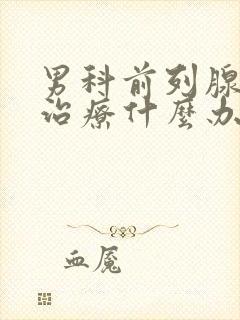 男科前列腺
治療什麼办
血魇